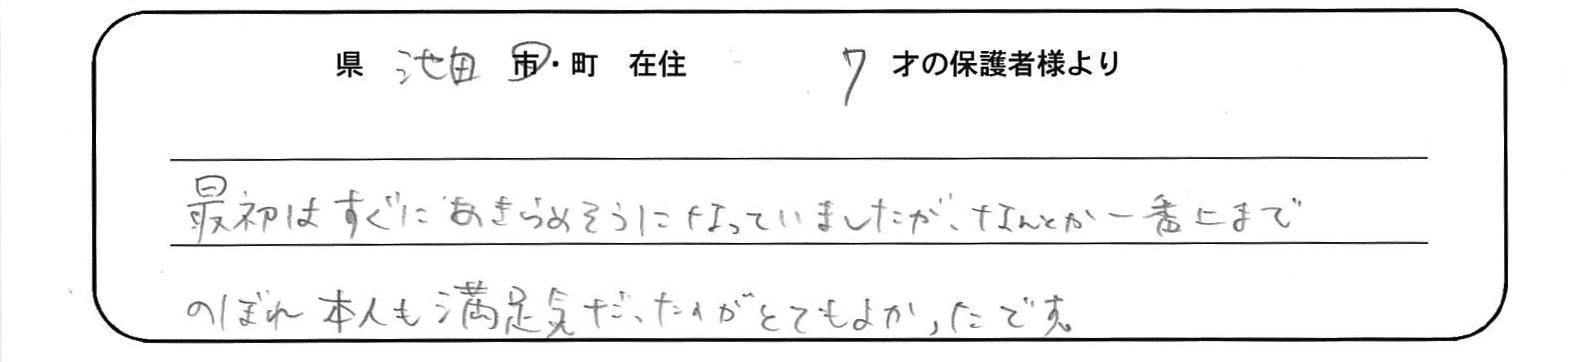 県 池田 市・町 在住 7 才の保護者様より
最初はすぐにあきらめそうになっていましたが、なんとか一番上まで
のぼれ本人も満足気だったのがとてもよかったです。